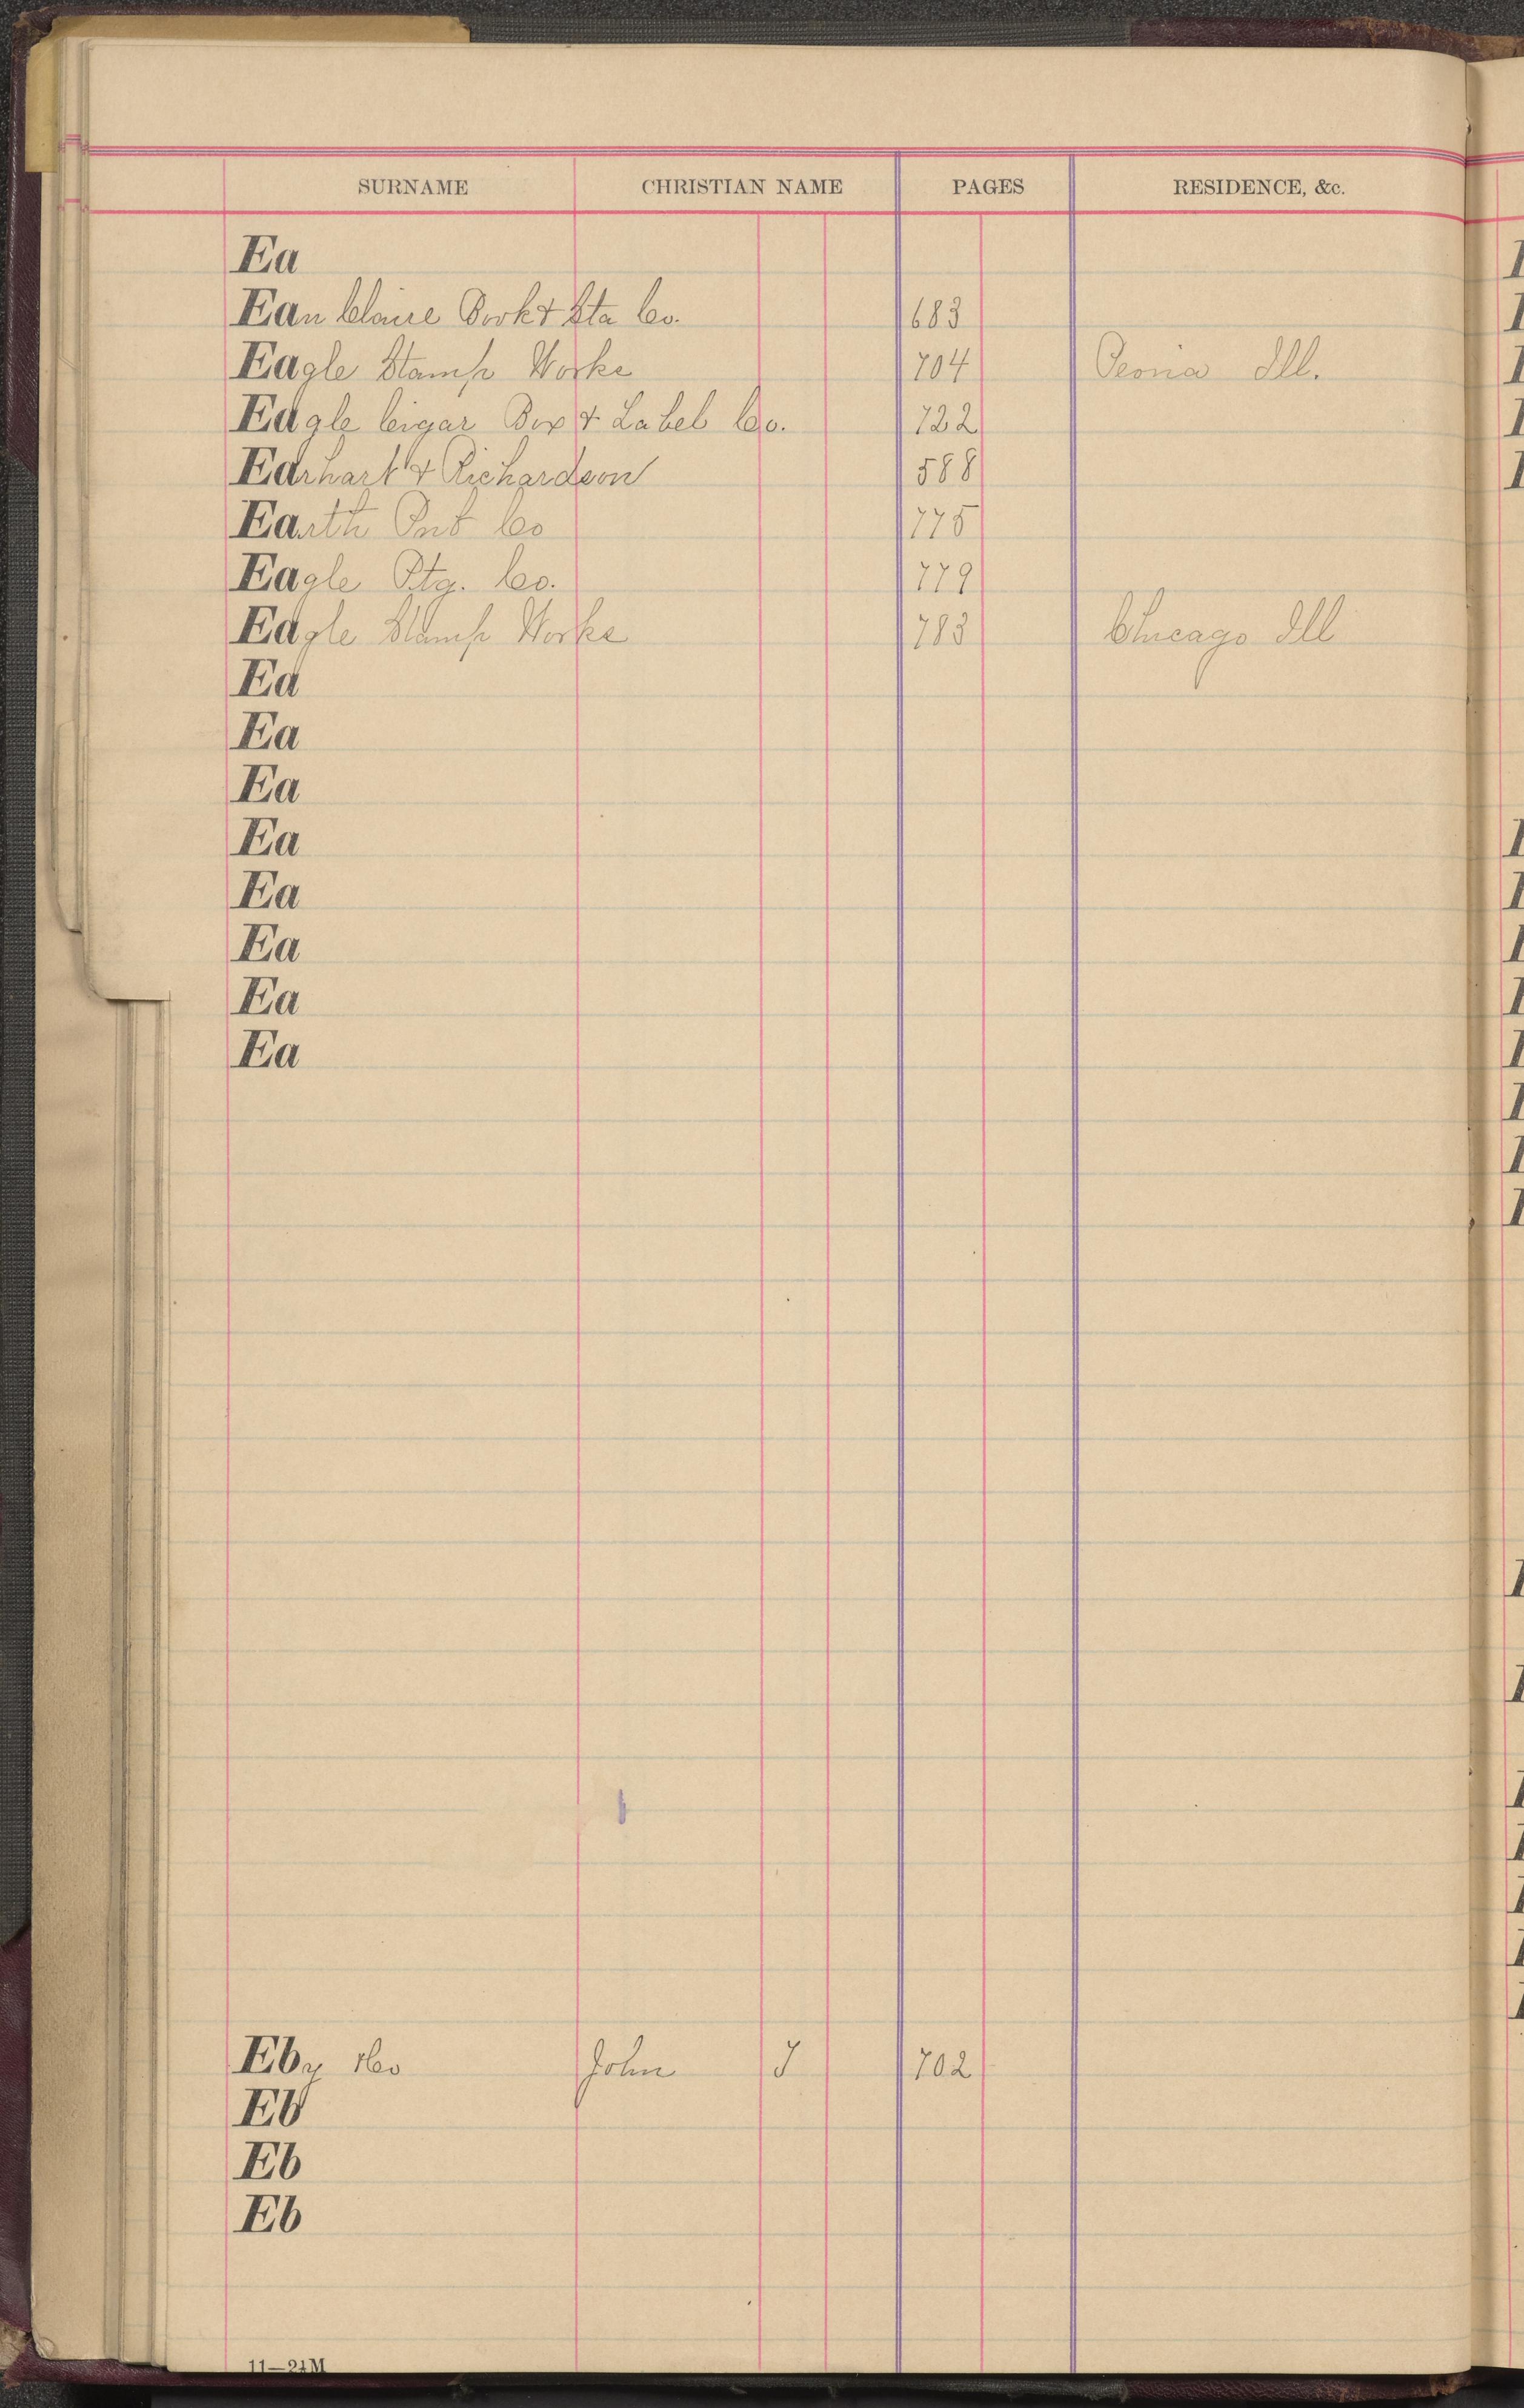 SURNAME CHRISTIAN NAME PAGES RESIDENCE, &c.
Ea
Eau Claire Book & Sta Co. 683
Eagle Stamp Works 704 Peoria Ill.
Eagle Cigar Box & Label Co. 722
Earhart & Richardson 588
Earth Pub Co 775
Eagle Ptg. Co. 779
Eagle Stamp Works 783 Chicago Ill
Ea
Ea
Ea
Ea
Ea
Ea
Ea
Ea
Eby &Co John J 702
Eb
Eb
Eb
11—21M